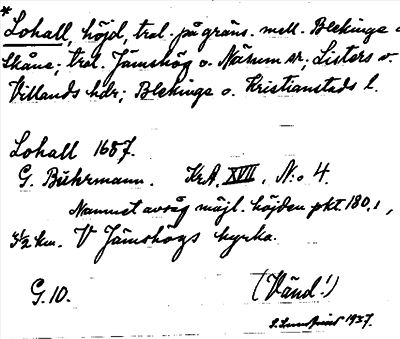 * Lohall, höjd, trol. på gräns. mell. Blekinge o.
Skåne; trol. Jämshög o. Näsum sr; Listers o.
Villands hdr; Blekinge o. Kristianstads l.
Lohall 1687.
G. Buhrmann. Kr.A. XVII. N:o 4.
Namnet avsåg möjl. höjden pkt 180,1,
3 1/2 km. V Jämshögs kyrka.
G. 10. (Vänd!)
1937.